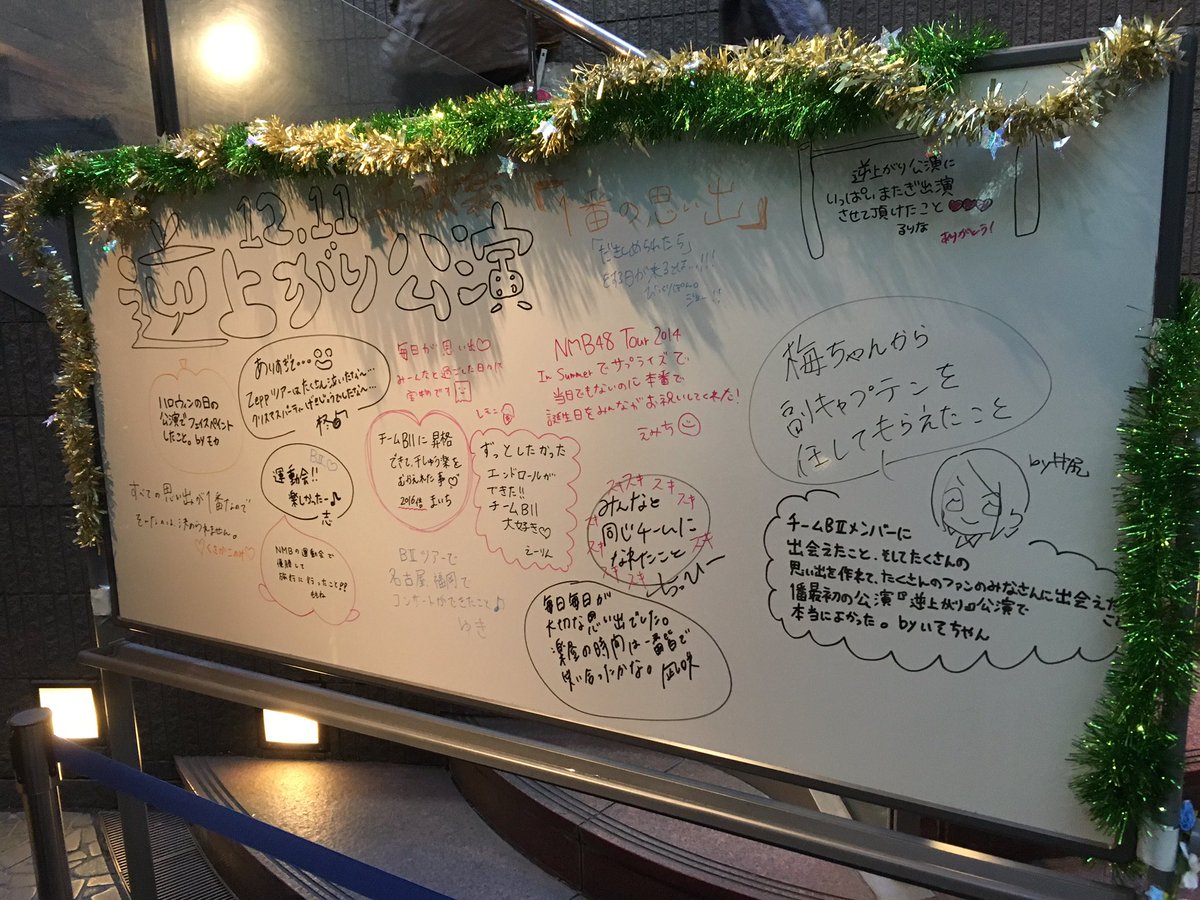 12.11
逆上がり公演
「1番の思い出」
「だきしめられたら」
をする日が来るとは…!!!
びっくりぽん。
逆上がり公演に
いっぱいまたぎ出演
させて頂けたこと
るりな
ありがとう!
ありすぎて…
Zeppツアーはたくさん泣いたな〜…
クリスマスパーティーげきじょうでしたな〜…
柊
毎日が思い出♡
みーんなと過ごした日々に
宝物です
NMB48 Tour 2014
In Summerでサプライズで、
当日でもないのに本番で
誕生日をみんながお祝いしてくれた!
えみち
梅ちゃんから
副キャプテンを
任してもらえたこと
by井尻
ハロウィンの日の
公演でフェイスペイント
したこと。by モカ
BⅡ♡
運動会!!
楽しかったー♪
志
チームBⅡに昇格
できて、千しゅう楽を
むかえれた事♡
まいち
レモン
ずっとしたかった
エンドロールが
できた!!
チームBⅡ
大好き♡
えーりん
スキ スキ スキ
みんなと
同じチームに
なれたこと
スキ スキ
じっぴー
すべての思い出が1番なので
そんなのは、決められません。
♡くさかこのみ♡
NMBの運動会で
優勝して
旅行に行ったこと??
ももね
BⅡツアーで
名古屋、福岡で
コンサートができたこと♪
ゆき
毎日毎日が
大切な思い出でした。
楽屋の時間は一番皆で
笑い合ったかな。凪咲
チームBⅡメンバーに
出会えたこと、そしてたくさんの
思い出を作れて、たくさんのファンのみなさんに出会えたこと
1番最初の公演『逆上がり』公演で
本当によかった。byいてちゃん